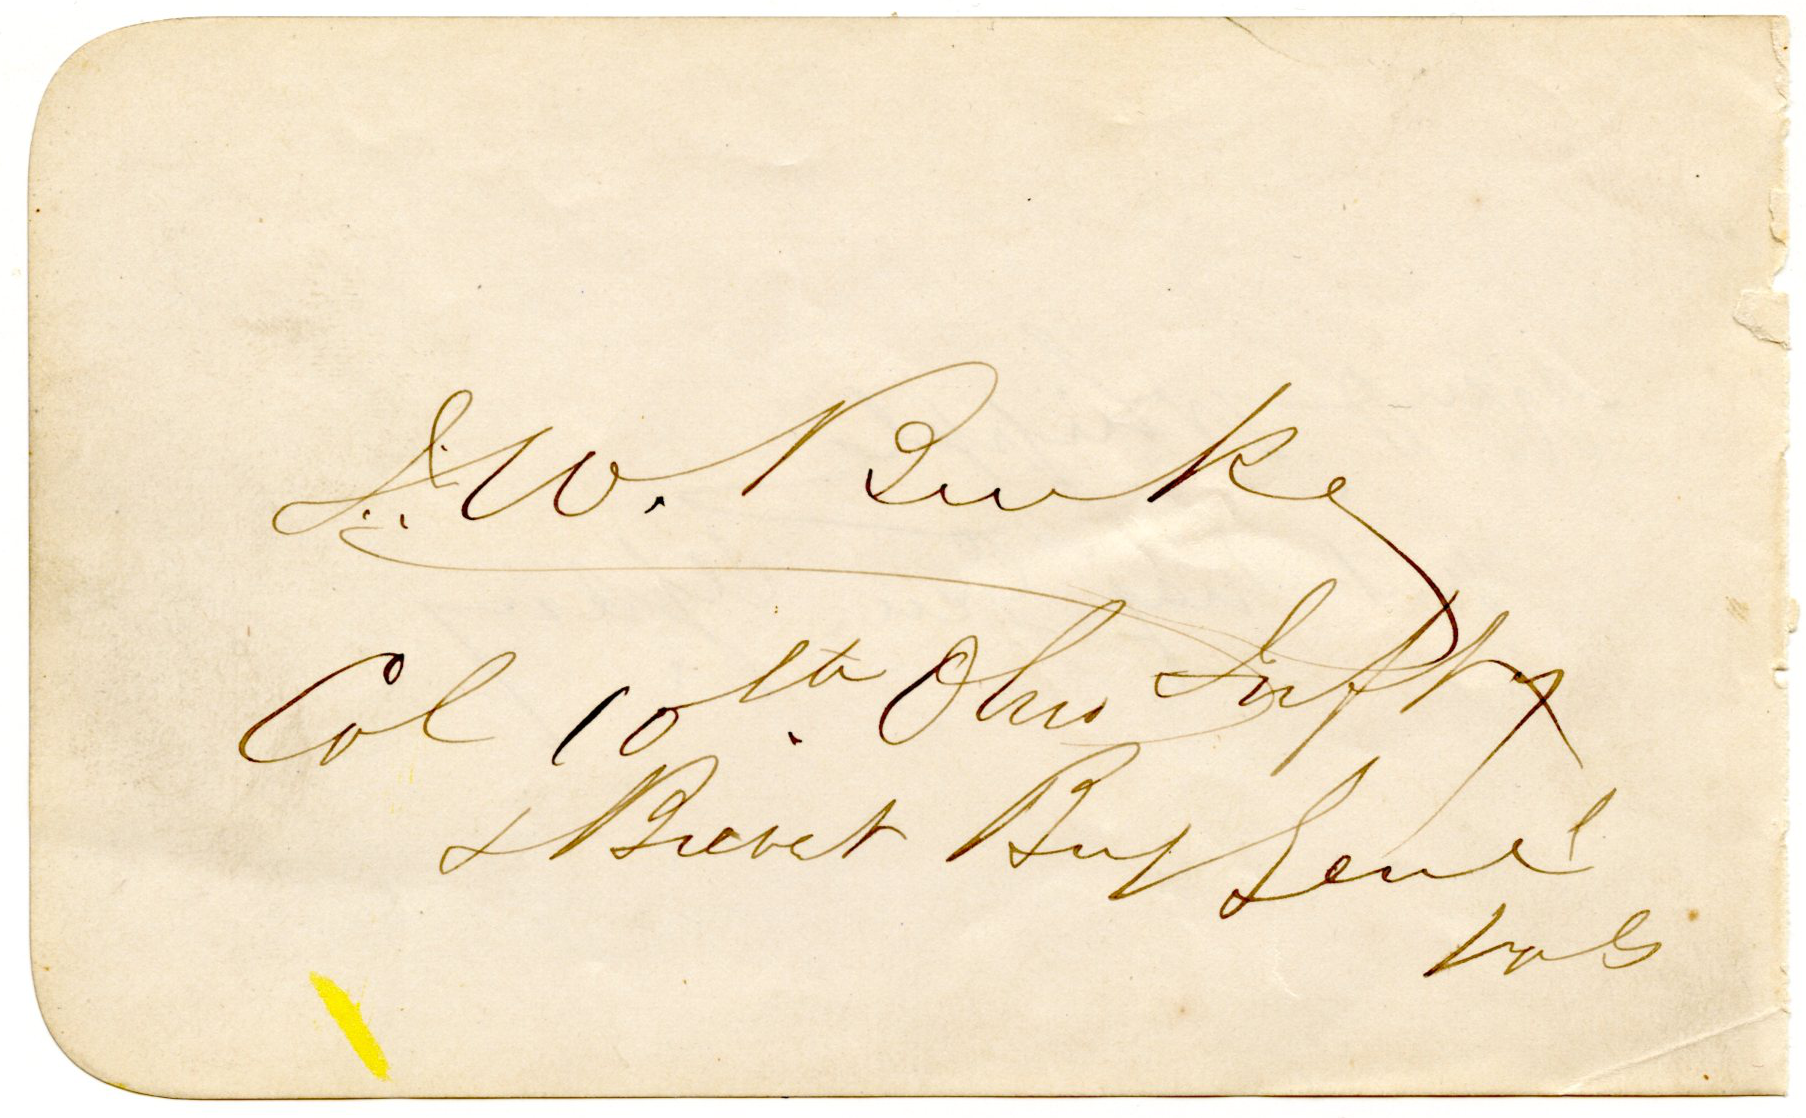 J. W. Burke
Col 10th. Ohio Infty
& Brevet Brig Genl
Vols